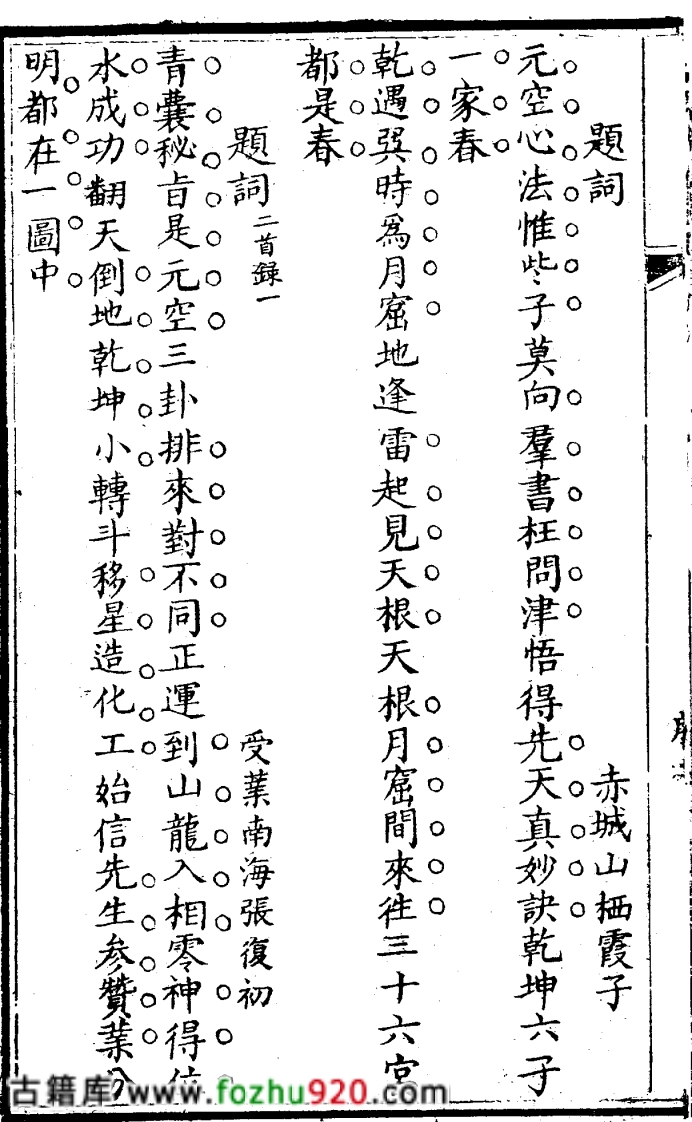 題詞
赤城山栖霞子
元空心法惟些子莫向羣書枉問津悟得先天真妙訣乾坤六子
一家春
乾遇巽時爲月窟地逢雷起見天根天根月窟間來徃三十六宮
都是春
題詞二首録一
受業南海張復初
青囊秘旨是元空三卦排來對不同正運到山龍入相零神得位
水成功翻天倒地乾坤小轉斗移星造化工始信先生参贊業分
明都在一圖中
古籍库 www.fozhu920.com